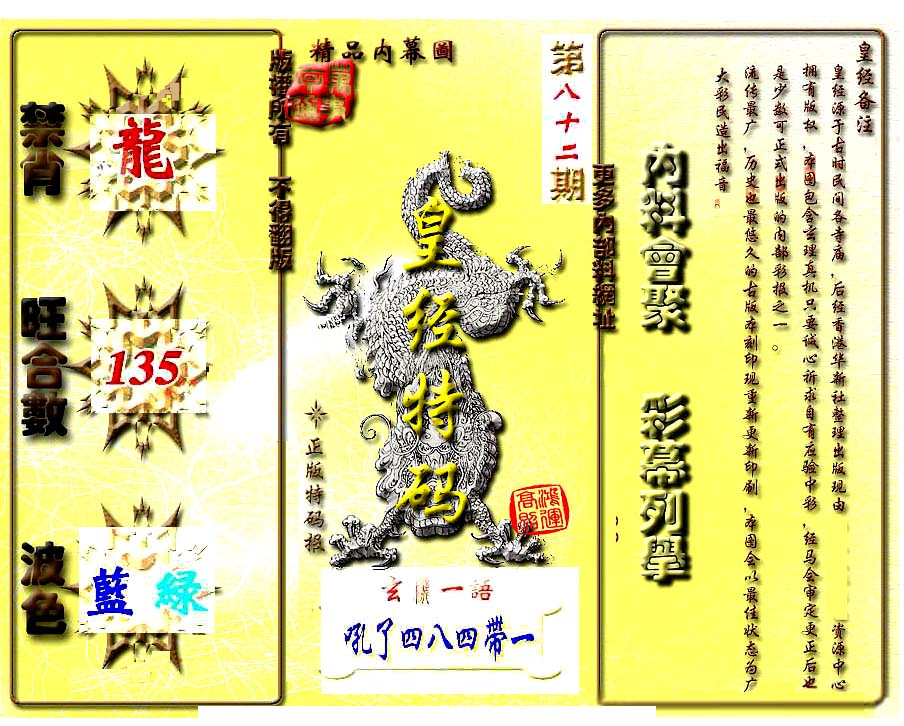 皇经各注
皇经源于古时民间各寺庙,后经香港华新社整理出版现由 资源中心
拥有版权,本图包含玄理真机只要诚心祈求自有应验中彩,经马会审定更正后也
是少数可正式出版的内部彩报之一。
流传最广,历史也最悠久的古版本刻印现重新更新印刷,本图会以最佳状态为广
大彩民造出福音
內料會聚 彩幕列學
更多內部料網址
第八十二期
精品内幕圖
版權所有 不得翻版
皇经特码
正版特码报
鴻運高照
玄機一語
吼了四八四帶一
禁肖
龍
旺合數
135
波色
藍 綠